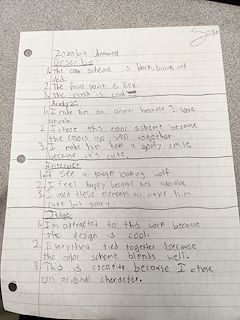 Zozobra drawing
Describe
1. The color scheme is black, brown, and
red.
2. The focal point is Rex
3. The mood is cool
Analyze
1. I made him an animal because I love
animals.
2. I chose this color scheme because
the colors go well together
3. I made him have a goofy smile
because it's cute.
Interpret
1. I see a tough looking wolf
2. I feel happy because he's adorable
3. I used these elements to make him
cute but scary
Judge
1. I'm attracted to this work because
the design is cool.
2. Everything tied together because
the color scheme blends well.
3. This is creative because I chose
an original character.